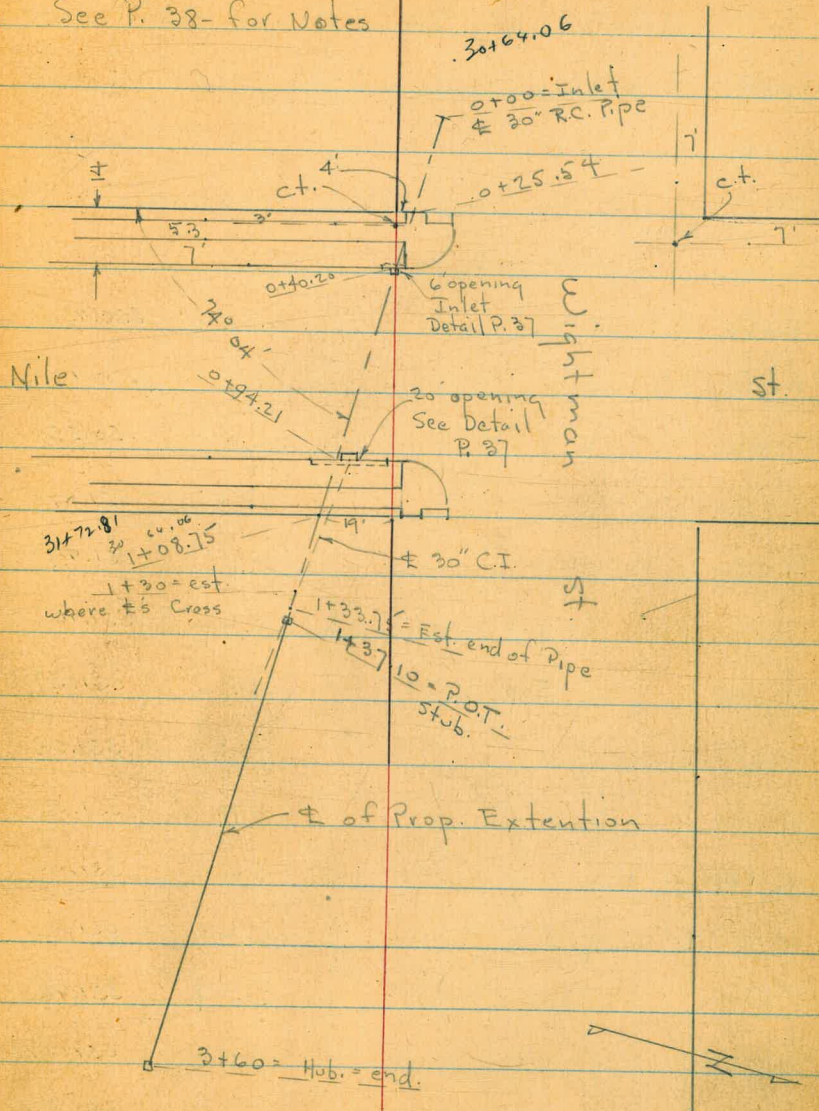 See P. 38- for Notes
30+64.06
0+00 = Inlet
℄ 30" R.C. Pipe
7'
4'
c.t.
0+25.54
c.t.
3'
5.3
7'
7'
0+40.20
6' opening
Inlet
Detail P. 37
Wightman
74°
04'
Nile
St.
0+94.21
20' opening
See Detail
P. 37
31+72.81
30 64.06
1+08.75
19'
℄ 30" C.I.
1+30 = est.
where ℄'s Cross
St
1+33.75 = Est. end of Pipe
1+37.10 = P.O.T.
Stub.
℄ of Prop. Extention
3+60 = Hub. = end.
N